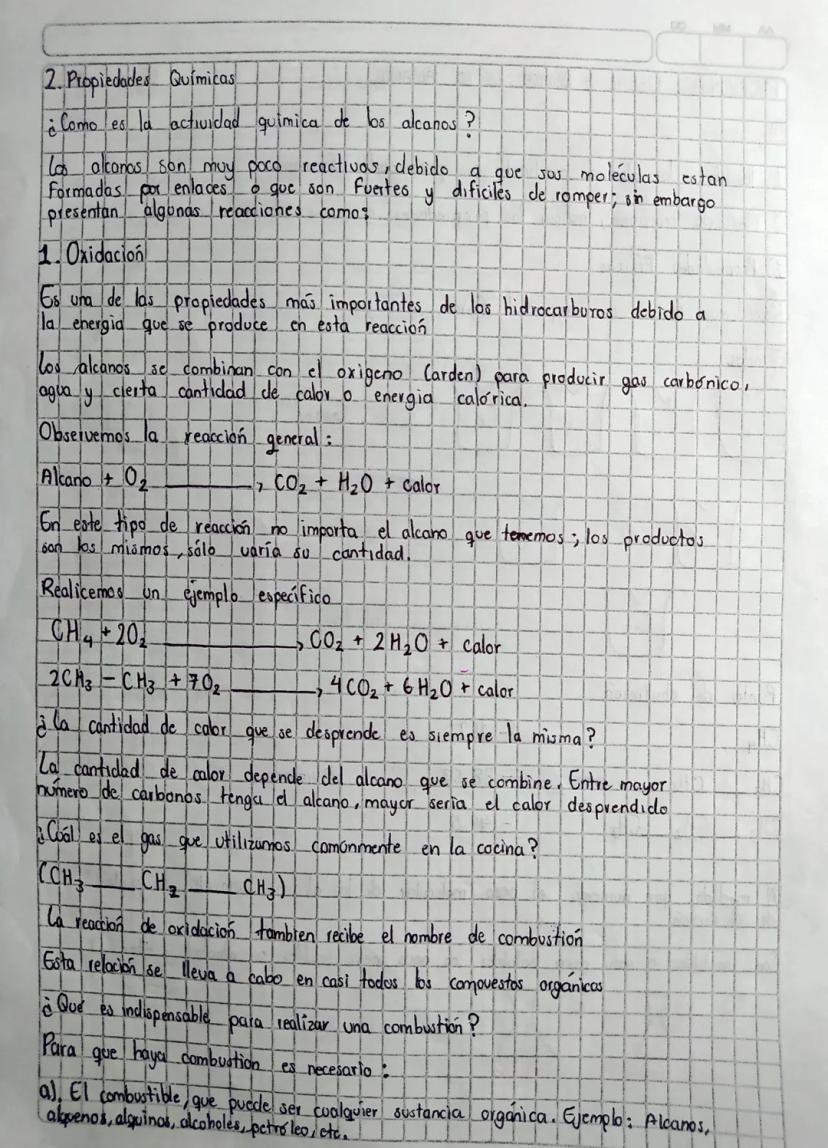 2. Propiedades Químicas
¿Como es la actividad química de los alcanos?
Los alcanos son muy poco reactivos, debido a que sus moléculas estan
formadas por enlaces σ que son fuertes y dificiles de romper; sin embargo
presentan algunas reacciones como:
1. Oxidación
Es una de las propiedades más importantes de los hidrocarburos debido a
la energia que se produce en esta reacción
Los alcanos se combinan con el oxigeno (arden) para producir gas carbónico,
agua y cierta cantidad de calor o energia calórica.
Observemos la reacción general:
Alcano + O₂ ⟶ CO₂ + H₂O + calor
En este tipo de reacción no importa el alcano que tenemos; los productos
son los mismos, sólo varía su cantidad.
Realicemos un ejemplo específico
CH₄ + 2O₂ ⟶ CO₂ + 2H₂O + calor
2CH₃ − CH₃ + 7O₂ ⟶ 4CO₂ + 6H₂O + calor
¿La cantidad de calor que se desprende es siempre la misma?
La cantidad de calor depende del alcano que se combine. Entre mayor
número de carbonos tenga el alcano, mayor seria el calor desprendido
¿Cuál es el gas que utilizamos comúnmente en la cocina?
(CH₃ — CH₂ — CH₃)
La reacción de oxidación tambien recibe el nombre de combustión
Esta relación se lleva a cabo en casi todos los compuestos orgánicos
¿Qué es indispensable para realizar una combustión?
Para que haya combustion es necesario:
a). El combustible, que puede ser cualquier sustancia orgánica. Ejemplo: Alcanos,
alquenos, alquinos, alcoholes, petróleo, etc.